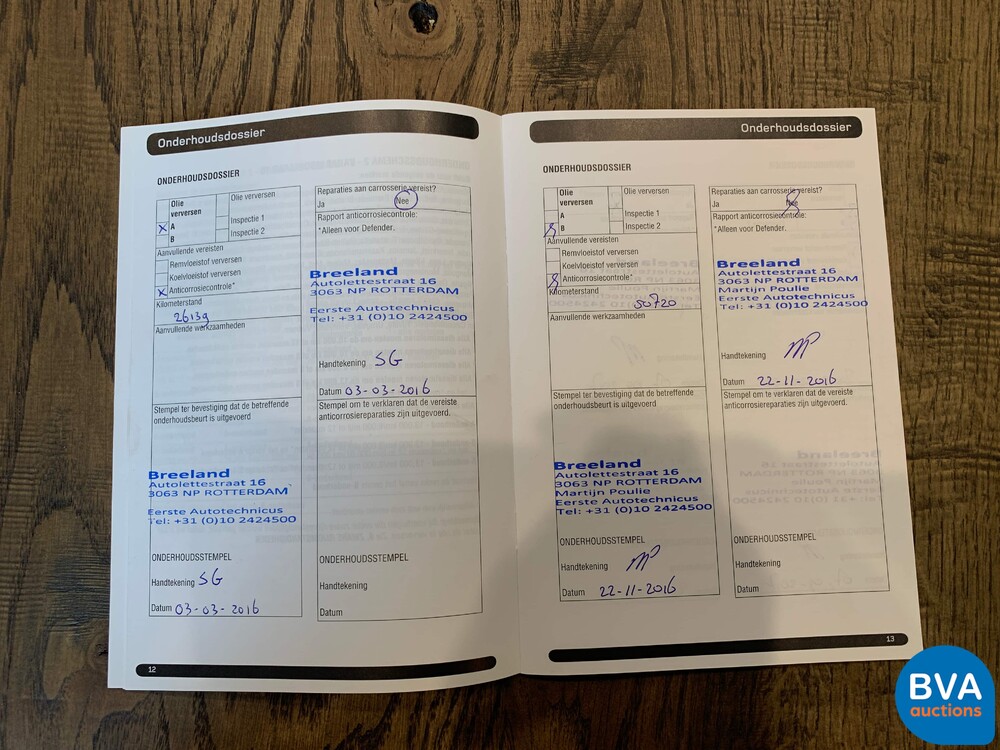 Onderhoudsdossier
ONDERHOUDSDOSSIER
Olie verversen
x A
B
Olie verversen
Inspectie 1
Inspectie 2
Aanvullende vereisten
Remvloeistof verversen
Koelvloeistof verversen
x Anticorrosiecontrole*
Kilometerstand
26139
Aanvullende werkzaamheden
Stempel ter bevestiging dat de betreffende
onderhoudsbeurt is uitgevoerd
Breeland
Autolettestraat 16
3063 NP ROTTERDAM
Eerste Autotechnicus
Tel: +31 (0)10 2424500
ONDERHOUDSSTEMPEL
Handtekening SG
Datum 03-03-2016
Reparaties aan carrosserie vereist?
Ja Nee
Rapport anticorrosiecontrole:
*Alleen voor Defender.
Breeland
Autolettestraat 16
3063 NP ROTTERDAM
Eerste Autotechnicus
Tel: +31 (0)10 2424500
Handtekening SG
Datum 03-03-2016
Stempel om te verklaren dat de vereiste
anticorrosiereparaties zijn uitgevoerd.
ONDERHOUDSSTEMPEL
Handtekening
Datum
12
Onderhoudsdossier
ONDERHOUDSDOSSIER
Olie
verversen
A
B
Olie verversen
Inspectie 1
Inspectie 2
Aanvullende vereisten
Remvloeistof verversen
Koelvloeistof verversen
Anticorrosiecontrole*
Kilometerstand
50720
Aanvullende werkzaamheden
Stempel ter bevestiging dat de betreffende
onderhoudsbeurt is uitgevoerd
Breeland
Autolettestraat 16
3063 NP ROTTERDAM
Martijn Poulie
Eerste Autotechnicus
Tel: +31 (0)10 2424500
ONDERHOUDSSTEMPEL
Handtekening MP
Datum 22-11-2016
Reparaties aan carrosserie vereist?
Ja Nee
Rapport anticorrosiecontrole:
*Alleen voor Defender.
Breeland
Autolettestraat 16
3063 NP ROTTERDAM
Martijn Poulie
Eerste Autotechnicus
Tel: +31 (0)10 2424500
Handtekening MP
Datum 22-11-2016
Stempel om te verklaren dat de vereiste
anticorrosiereparaties zijn uitgevoerd.
ONDERHOUDSSTEMPEL
Handtekening
Datum
13
BVA
auctions